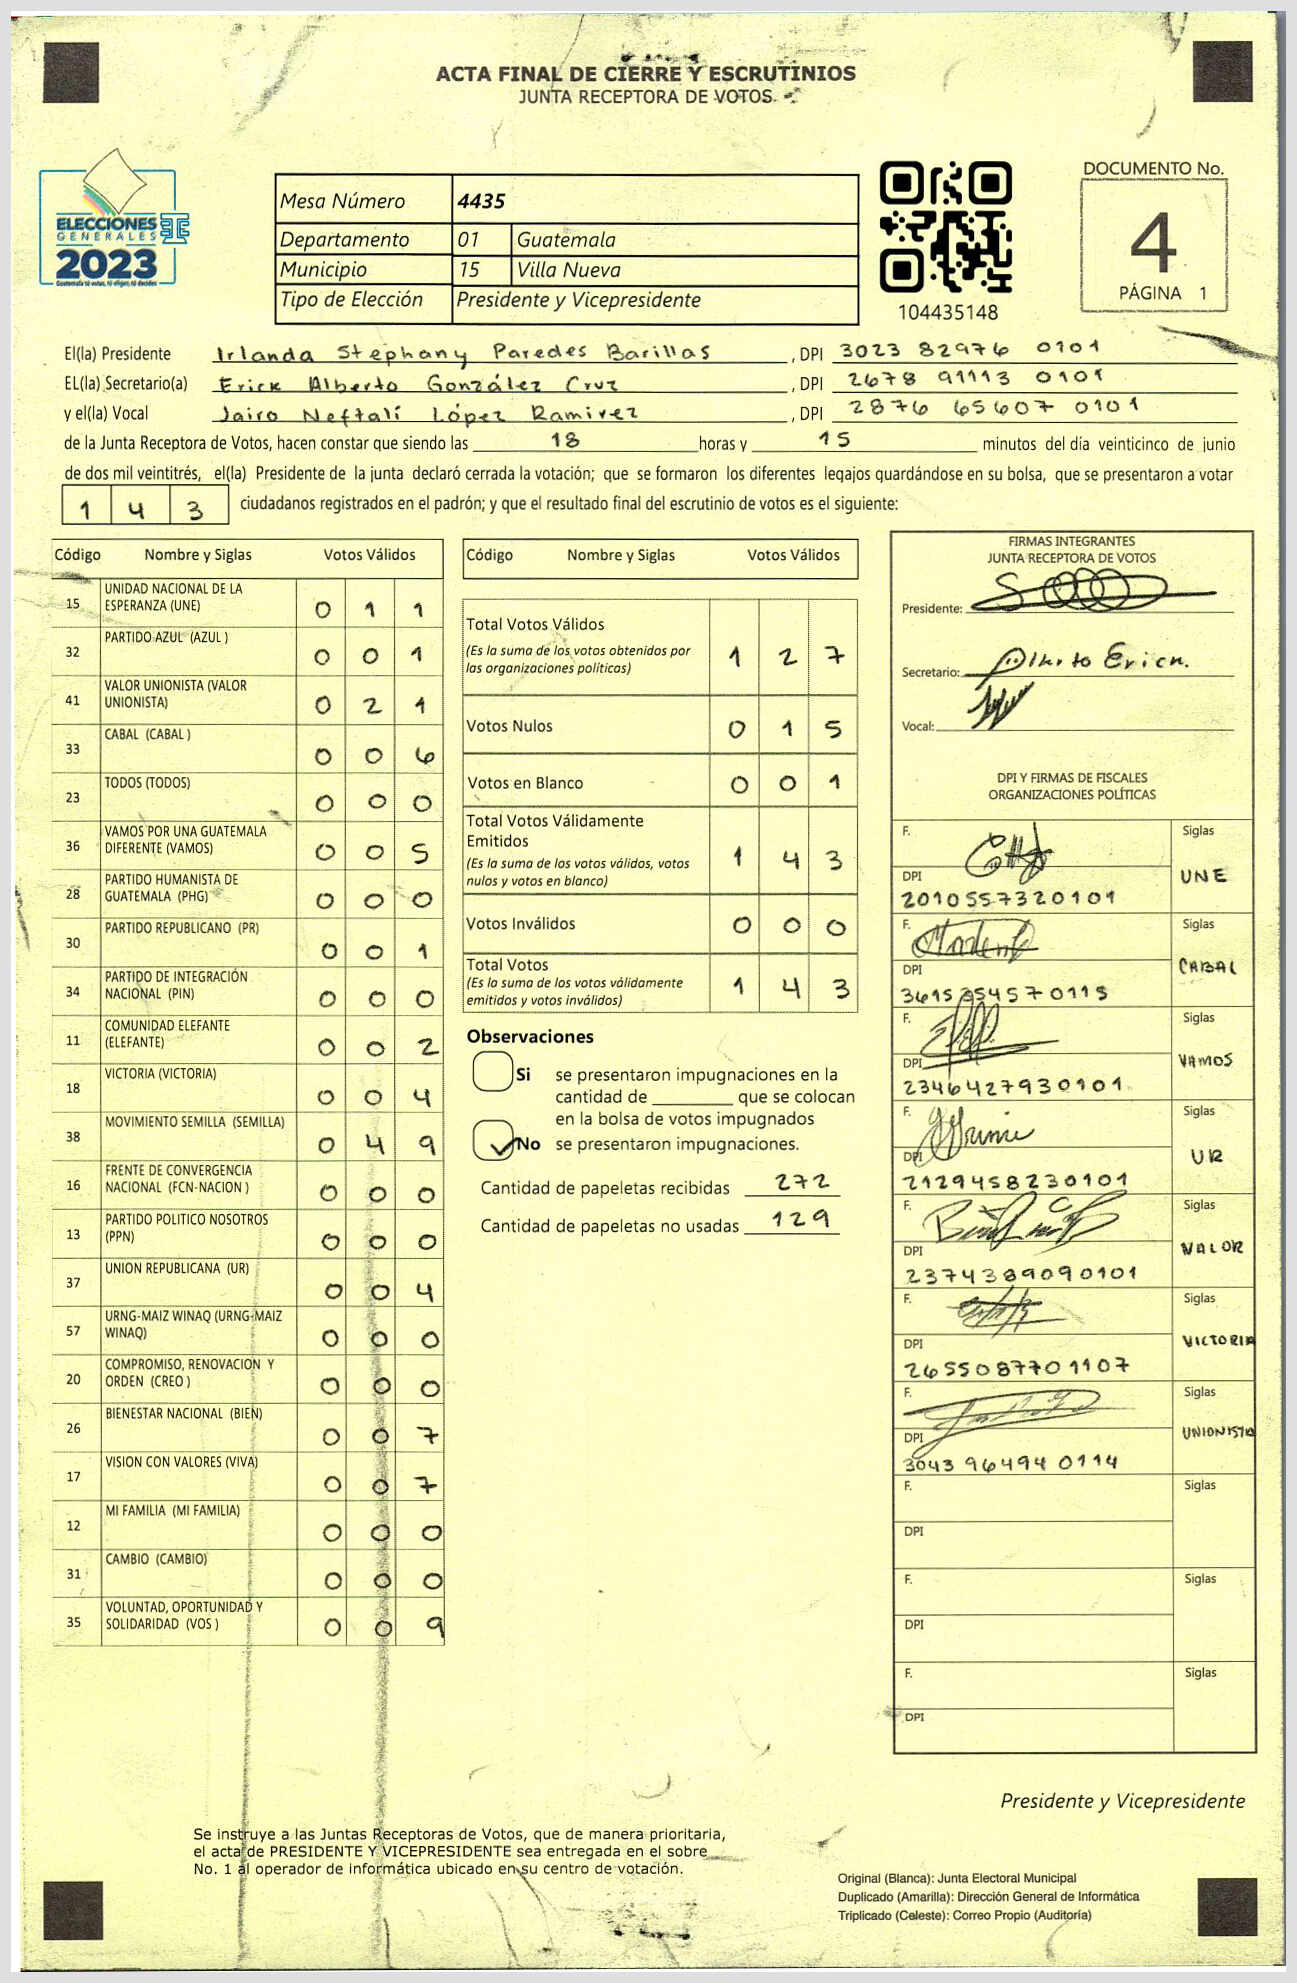 ACTA FINAL DE CIERRE Y ESCRUTINIOS
JUNTA RECEPTORA DE VOTOS
ELECCIONES
GENERALES
2023
Guatemala tú votas, tú eliges, tú decides
Mesa Número 4435
Departamento 01 Guatemala
Municipio 15 Villa Nueva
Tipo de Elección Presidente y Vicepresidente
104435148
DOCUMENTO No.
4
PÁGINA 1
El(la) Presidente Irlanda Stephany Paredes Barillas, DPI 3023 82976 0101
EL(la) Secretario(a) Erick Alberto González Cruz, DPI 2678 91113 0101
y el(la) Vocal Jairo Neftalí López Ramirez, DPI 2876 65607 0101
de la Junta Receptora de Votos, hacen constar que siendo las 18 horas y 15 minutos del día veinticinco de junio
de dos mil veintitrés, el(la) Presidente de la junta declaró cerrada la votación; que se formaron los diferentes legajos guardándose en su bolsa, que se presentaron a votar
143 ciudadanos registrados en el padrón; y que el resultado final del escrutinio de votos es el siguiente:
Código Nombre y Siglas Votos Válidos
15 UNIDAD NACIONAL DE LA ESPERANZA (UNE) 0 1 1
32 PARTIDO AZUL (AZUL ) 0 0 1
41 VALOR UNIONISTA (VALOR UNIONISTA) 0 2 1
33 CABAL (CABAL ) 0 0 6
23 TODOS (TODOS) 0 0 0
36 VAMOS POR UNA GUATEMALA DIFERENTE (VAMOS) 0 0 5
28 PARTIDO HUMANISTA DE GUATEMALA (PHG) 0 0 0
30 PARTIDO REPUBLICANO (PR) 0 0 1
34 PARTIDO DE INTEGRACIÓN NACIONAL (PIN) 0 0 0
11 COMUNIDAD ELEFANTE (ELEFANTE) 0 0 2
18 VICTORIA (VICTORIA) 0 0 4
38 MOVIMIENTO SEMILLA (SEMILLA) 0 4 9
16 FRENTE DE CONVERGENCIA NACIONAL (FCN-NACION ) 0 0 0
13 PARTIDO POLITICO NOSOTROS (PPN) 0 0 0
37 UNION REPUBLICANA (UR) 0 0 4
57 URNG-MAIZ WINAQ (URNG-MAIZ WINAQ) 0 0 0
20 COMPROMISO, RENOVACION Y ORDEN (CREO ) 0 0 0
26 BIENESTAR NACIONAL (BIEN) 0 0 7
17 VISION CON VALORES (VIVA) 0 0 7
12 MI FAMILIA (MI FAMILIA) 0 0 0
31 CAMBIO (CAMBIO) 0 0 0
35 VOLUNTAD, OPORTUNIDAD Y SOLIDARIDAD (VOS ) 0 0 9
Código Nombre y Siglas Votos Válidos
Total Votos Válidos 1 2 7
(Es la suma de los votos obtenidos por
las organizaciones políticas)
Votos Nulos 0 1 5
Votos en Blanco 0 0 1
Total Votos Válidamente
Emitidos 1 4 3
(Es la suma de los votos válidos, votos
nulos y votos en blanco)
Votos Inválidos 0 0 0
Total Votos 1 4 3
(Es la suma de los votos válidamente
emitidos y votos inválidos)
Observaciones
Si se presentaron impugnaciones en la
cantidad de ________ que se colocan
en la bolsa de votos impugnados
No se presentaron impugnaciones.
Cantidad de papeletas recibidas 272
Cantidad de papeletas no usadas 129
FIRMAS INTEGRANTES
JUNTA RECEPTORA DE VOTOS
Presidente:
Secretario: Erick
Vocal:
DPI Y FIRMAS DE FISCALES
ORGANIZACIONES POLÍTICAS
F. Siglas
DPI UNE
2010557320101
F. Siglas
DPI CABAL
3615354570115
F. Siglas
DPI VAMOS
2346427930101
F. Siglas
DPI UR
2129458230101
F. Siglas
DPI VALOR
2374389090101
F. Siglas
DPI VICTORIA
2655087701107
F. Siglas
DPI UNIONISTA
3043 96494 0114
F. Siglas
DPI
F. Siglas
DPI
F. Siglas
DPI
Presidente y Vicepresidente
Se instruye a las Juntas Receptoras de Votos, que de manera prioritaria,
el acta de PRESIDENTE Y VICEPRESIDENTE sea entregada en el sobre
No. 1 al operador de informática ubicado en su centro de votación.
Original (Blanca): Junta Electoral Municipal
Duplicado (Amarilla): Dirección General de Informática
Triplicado (Celeste): Correo Propio (Auditoría)